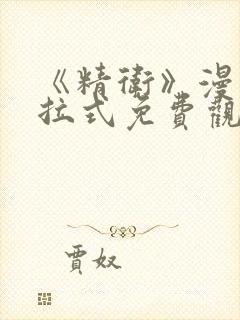 《精衛》漫
拉式免費觀
賈奴